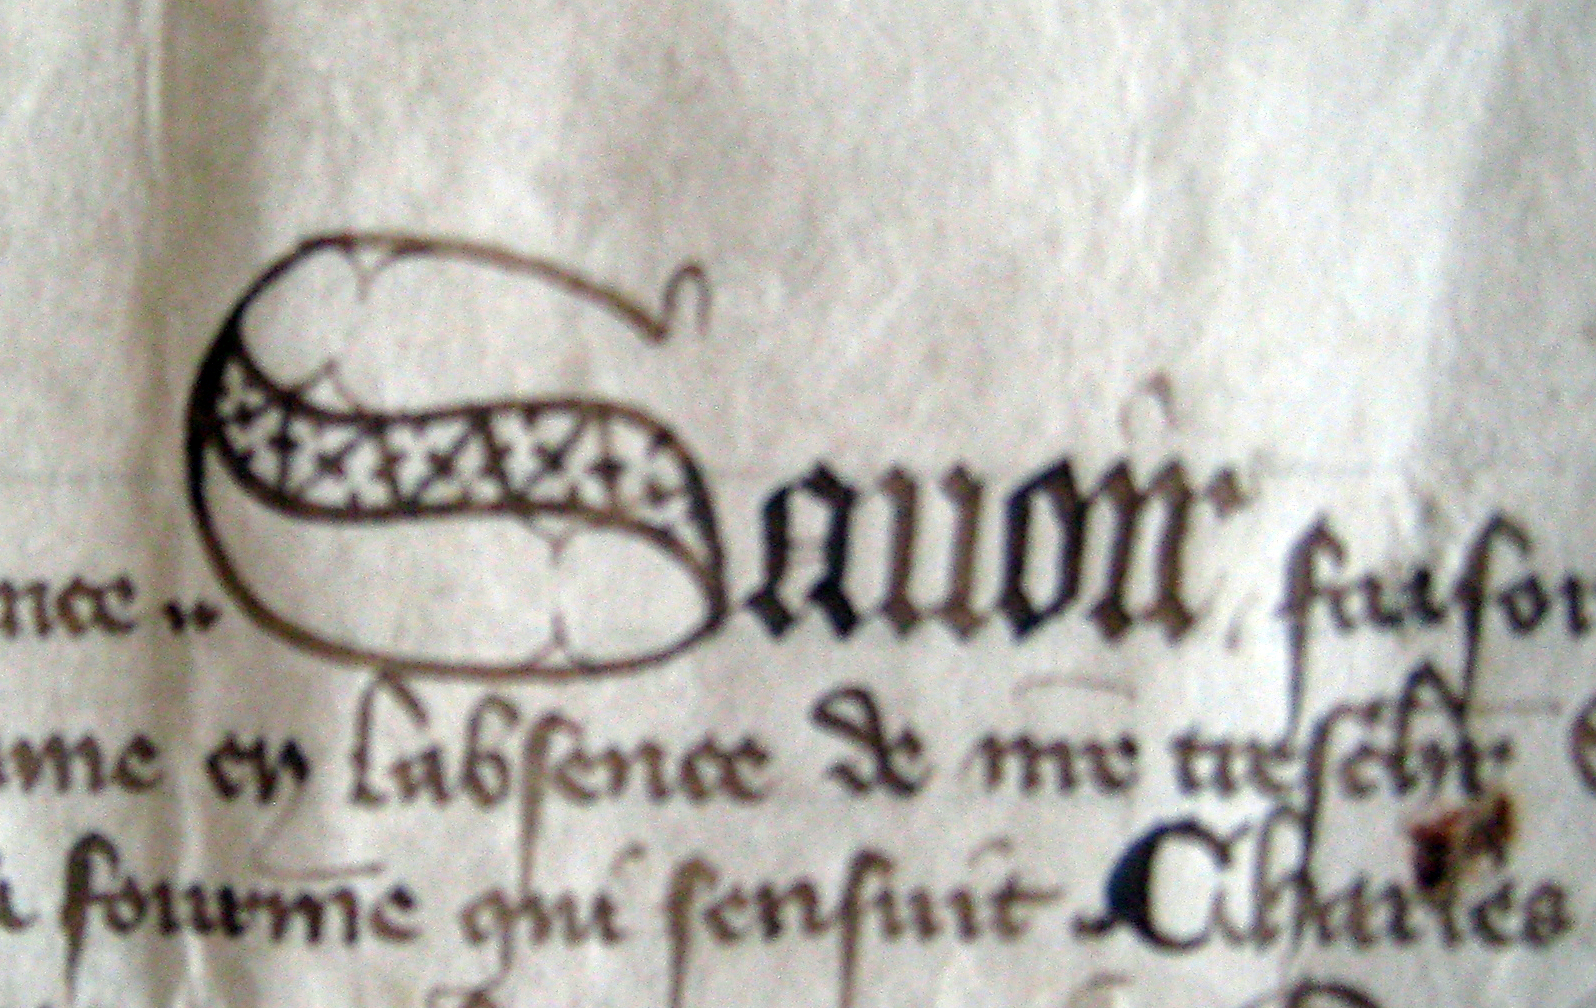 nce .. Savoir faison
me en labsence de nre treschr
fourme qui sensuit Charles